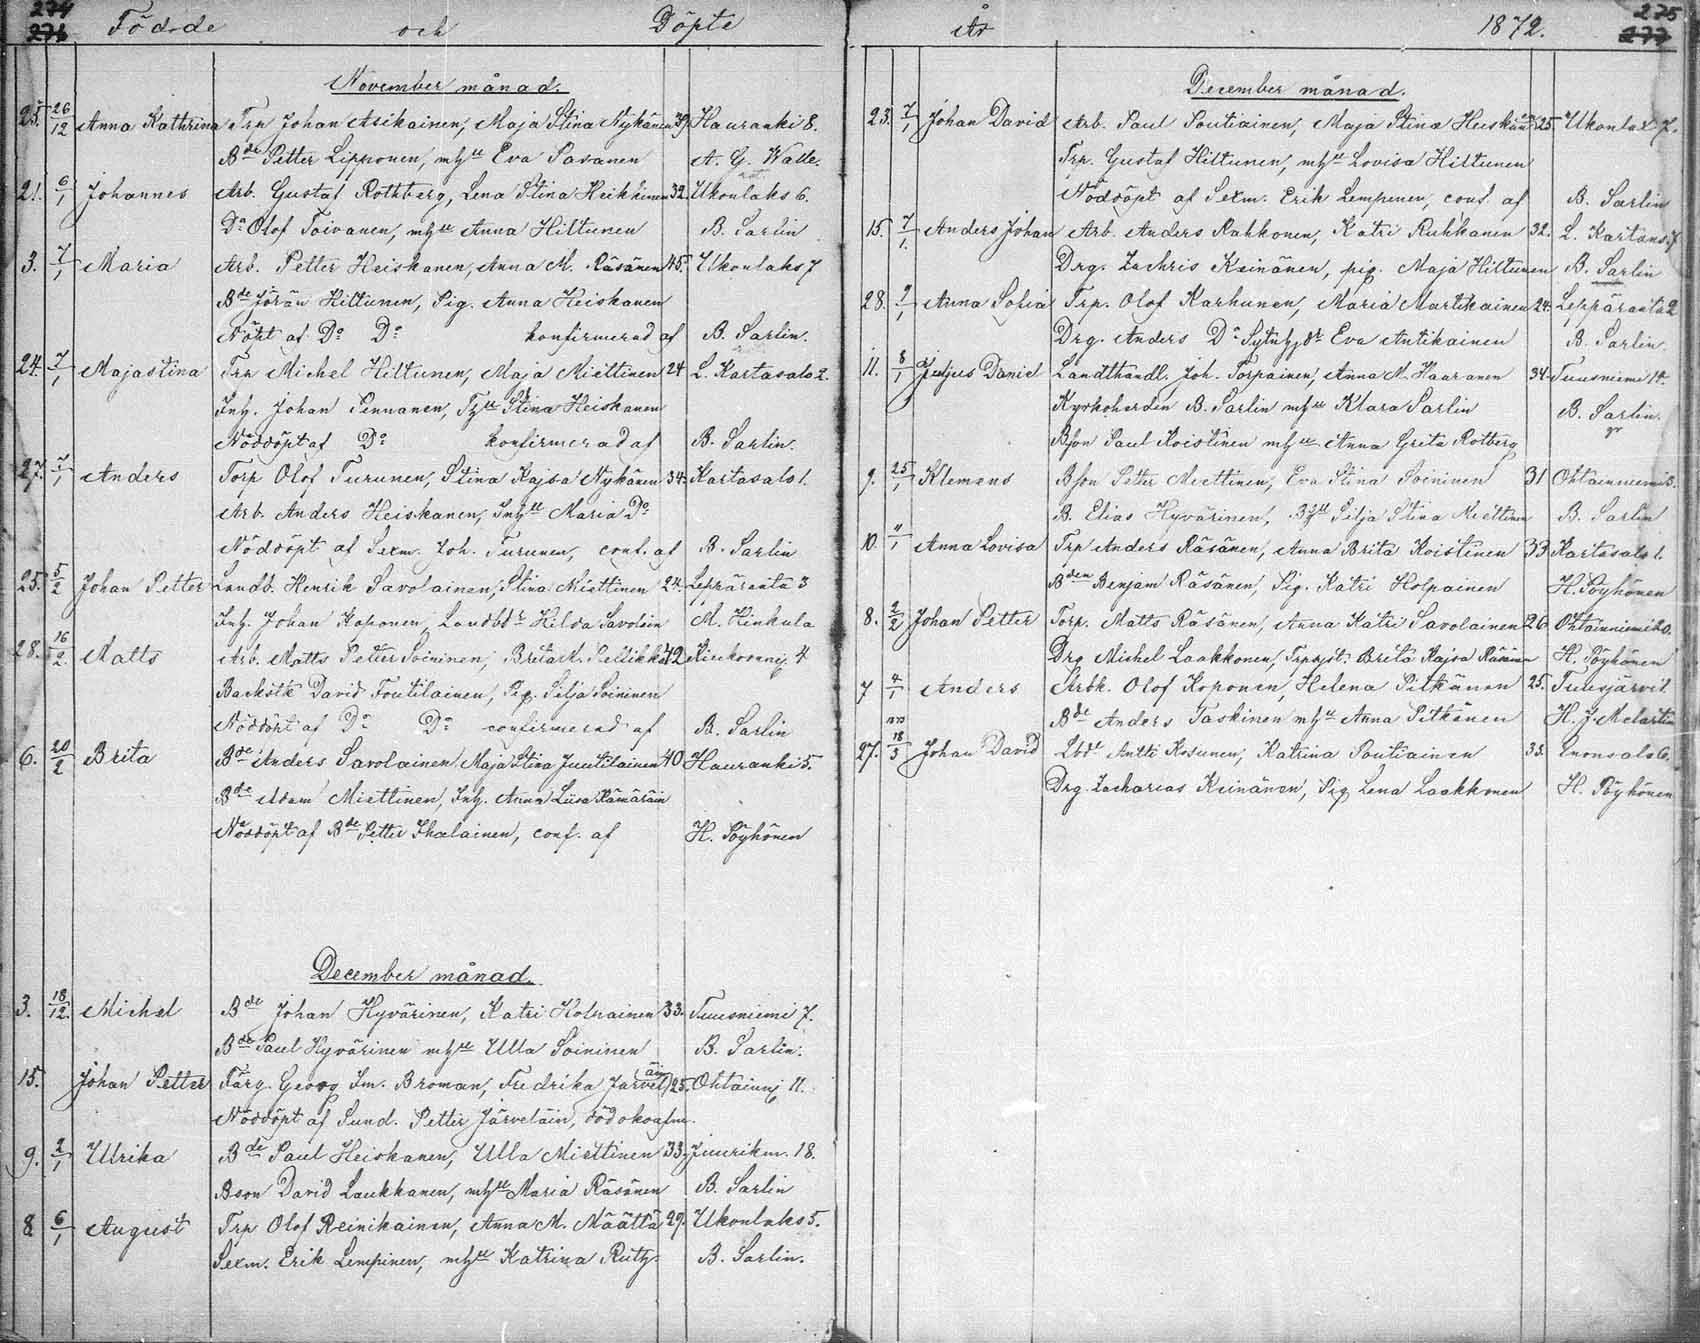 274
Födde och Döpte
November månad.
25. 26/12 Anna Kathrina Trp Johan Asikainen, Maja Stina Nykänen 39 Hauranki 8.
Bde Petter Lipponen, mhu Eva Pasanen A. G. Walle.
21. 6/1 Johannes Arb. Gustaf Rothberg, Lena Stina Heikkinen 32. Ukonlaks 6.
Do Olof Toivanen, mhu Anna Hiltunen B. Sarlin
3. 7/1 Maria Arb. Petter Heiskanen, Anna M. Räsänen 45. Ukonlaks 7
Bde Jöran Hiltunen, Pig. Anna Heiskanen
Nöpt af Do Do konfirmerad af B. Sarlin.
24. 7/1 Majastina Trp Michel Hiltunen, Maja Miettinen 24 L. Kartasalo 2.
Inh. Johan Pennanen, Stina Heiskanen
Nöddöpt af Do konfirmerad af B. Sarlin.
27. 7/1 Anders Torp Olof Turunen, Stina Kajsa Nykänen 34. Kartasalo 1.
Arb. Anders Heiskanen, Inhu Maria Do
Nöddöpt af Sexm. Joh. Turunen, conf. af B. Sarlin
25. 5/2 Johan Petter Landb. Henrik Savolainen, Stina Miettinen 24. Leppäranta 3
Inh. Johan Koponen, Landbdr Hilda Savolain M. Hinkula
28. 16/2 Matts Arb. Matts Petter Soininen, Brita M. Pellikka 42 4
Backstk David Toutilainen, Pig. Silja Soininen
Nöddöpt af Do Do confirmerad af B. Sarlin
6. 20/2 Brita Bde Anders Savolainen, Maja Stina Juutilainen 40 Hauranki 5.
Bde Adam Miettinen, Inh. Anna Liisa Hämäräin
Nöddöpt af Bde Petter Ihalainen, conf. af H. Pöyhönen
December månad.
3. 18/12 Michel Bde Johan Hyvärinen, Katri Holpainen 33. Tuusniemi 7.
Bde Paul Hyvärinen mhu Ulla Soininen B. Sarlin.
15. Johan Petter Färg. Georg Im. Broman, Fredrika Järveläin 25. Ohtainnj 11.
Nöddöpt af Sund. Petter Järveläin, död okonfm.
9. 2/1 Ulrika Bde Paul Heiskanen, Ulla Miettinen 33. Juurikm. 18.
Bson David Laukkanen, mhu Maria Räsänen B. Sarlin
8 6/1 August Trp Olof Reinikainen, Anna M. Määttä 29. Ukonlaks 5.
Sexm. Erik Lempinen, mhu Katrina Ruth. B. Sarlin.
275
År 1872.
December månad.
23. 7/1 Johan David Arb. Paul Poutiainen, Maja Stina Heiskanen 25 Ukonlax 7.
Trp. Gustaf Hiltunen, mhu Lovisa Hiltunen
Nöddöpt af Sexm. Erik Lempinen, conf. af B. Sarlin
15. 7/1 Anders Johan Arb. Anders Rahkonen, Katri Ruhkanen 32. L. Kartans. 7
Drg. Zachris Keinänen, pig. Maja Hiltunen B. Sarlin
28. 9/1 Anna Sofia Trp. Olof Karhunen, Maria Martikainen 24. Leppäranta 2
Drg. Anders Do Eva Antikainen B. Sarlin.
11. 8/1 Julius Daniel Landthandl. Joh. Torpainen, Anna M. Haaranen 34. Tuusniemi 14.
Kyrkoherden B. Sarlin mhu Klara Sarlin B. Sarlin.
Bson Paul Koistinen mhu Anna Greta Rotberg
9. 25/1 Klemens Bson Petter Miettinen, Eva Stina Soininen 31 Ohtainniemi 3.
B. Elias Hyvärinen, Silja Stina Miettinen B. Sarlin
10. "/1 Anna Lovisa Trp Anders Räsänen, Anna Brita Koistinen 33 Kartasalo 1.
Bden Benjam Räsänen, Pig. Katri Holpainen H. Pöyhönen
8. 2/2 Johan Petter Torp. Matts Räsänen, Anna Katri Savolainen 26 Ohtainniemi 20.
Drg Michel Laakkonen, Brita Kajsa Räsänen H. Pöyhönen
7 4/1 Anders Arbk. Olof Koponen, Helena Pitkänen 25. Tuusjärvi 1.
Bde Anders Taskinen mhu Anna Pitkänen H. J. Melartin
1873
27. 18/3 Johan David Lbde Antti Kosunen, Katrina Poutiainen 33. Enonsalo 6.
Drg. Zacharias Keinänen, Pig Lena Laakkonen H. Pöyhönen